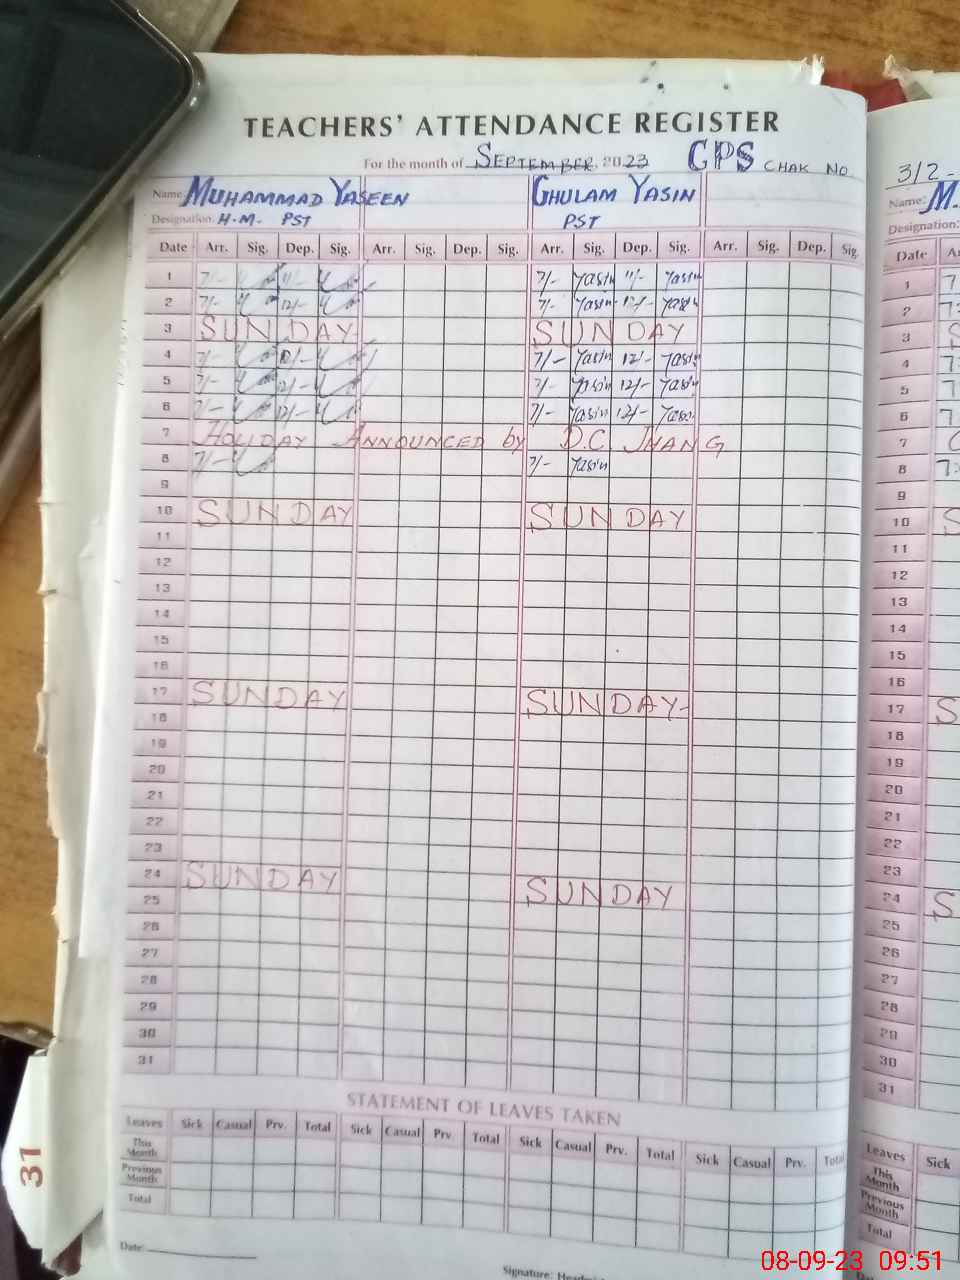 TEACHERS' ATTENDANCE REGISTER
For the month of SEPTEMBER 2023 GPS CHAK NO 312-
Name: MUHAMMAD YASEEN GHULAM YASIN Name: M.
Designation: H.M. PST PST Designation:
Date Arr. Sig. Dep. Sig. Arr. Sig. Dep. Sig. Arr. Sig. Dep. Sig. Arr. Sig. Dep. Sig. Date
1 7/- 11/- 7/- Yasin 11/- Yasin 1
2 7/- 12/- 7/- Yasin 12/- Yasin 2
3 SUNDAY SUNDAY 3 S
4 7/- 12/- 7/- Yasin 12/- Yasin 4
5 7/- 12/- 7/- Yasin 12/- Yasin 5
6 7/- 12/- 7/- Yasin 12/- Yasin 6
7 HOLIDAY ANNOUNCED by D.C. JHANG 7
8 7/- 7/- Yasin 8
9 9
10 SUNDAY SUNDAY 10 S
11 11
12 12
13 13
14 14
15 15
16 16
17 SUNDAY SUNDAY 17 S
18 18
19 19
20 20
21 21
22 22
23 23
24 SUNDAY SUNDAY 24 S
25 25
26 26
27 27
28 28
29 29
30 30
31 31
STATEMENT OF LEAVES TAKEN
Leaves Sick Casual Prv. Total Sick Casual Prv Total Sick Casual Prv. Total Sick Casual Prv. Total Leaves Sick
This Month This Month
Previous Month Previous Month
Total Total
Date:
Signature:
31
08-09-23 09:51